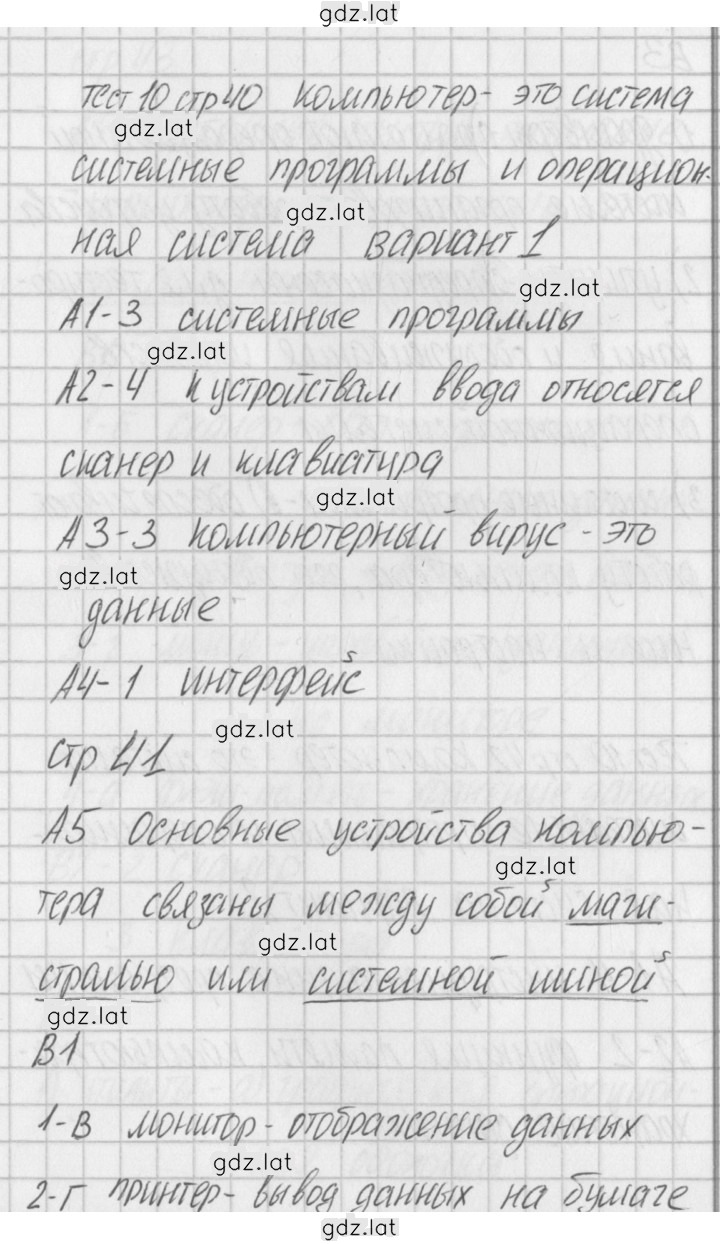 gdz.lat
Тест 10 стр 40 Компьютер- это система
gdz.lat
системные программы и операцион-
gdz.lat
ная система вариант 1
gdz.lat
А1-3 системные программы
gdz.lat
А2-4 к устройствам ввода относятся
сканер и клавиатура
gdz.lat
А3-3 компьютерный вирус - это
gdz.lat
данные
А4-1 интерфейс
gdz.lat
Стр 41
А5 Основные устройства компью-
gdz.lat
тера связаны между собой маги-
gdz.lat
стралью или системной шиной
gdz.lat
В1
1-В монитор- отображение данных
gdz.lat
2-Г принтер- вывод данных на бумаге
gdz.lat